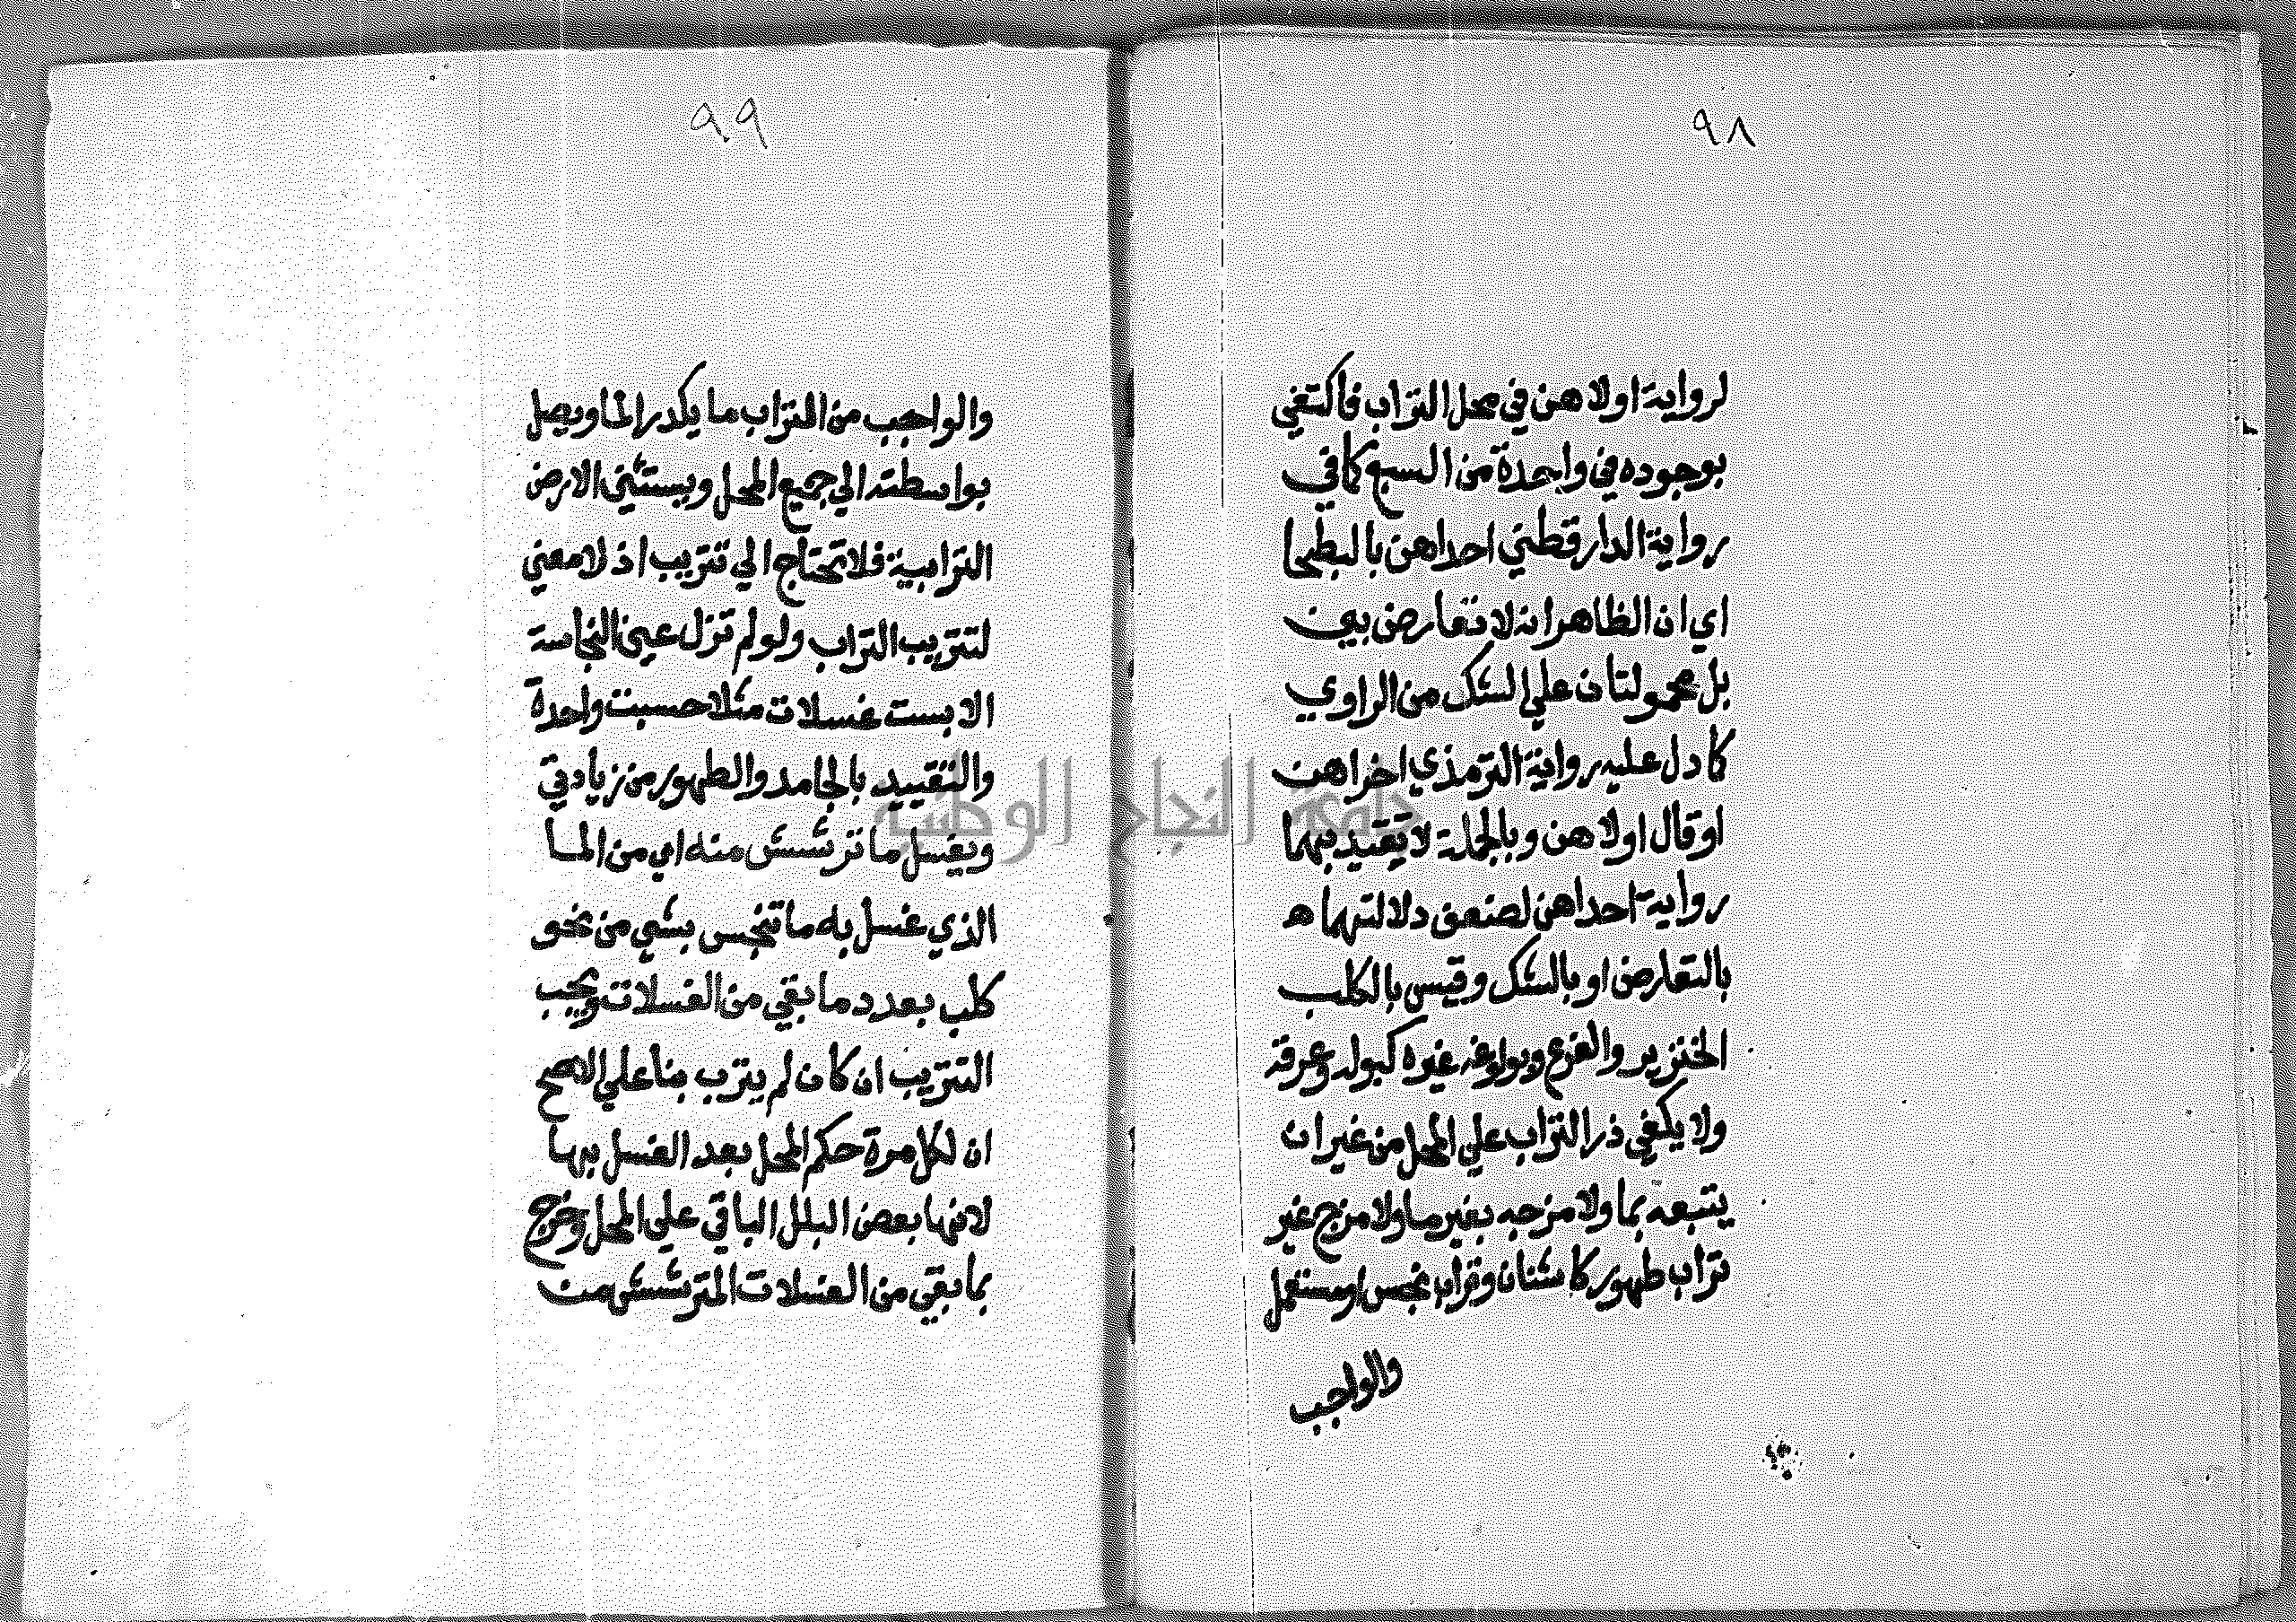 ٩٨
لرواية اولاهن في محل التراب فاكتفي
بوجوده في واحدة من السبع كما في
رواية الدارقطني احداهن بالبطحا
اي ان الظاهر انه لا تعارض بين
بل محمولتان علي الشك من الراوي
كما دل عليه رواية الترمذي اخراهن
او قال اولاهن وبالجملة لا يقيد بهما
رواية احداهن لضعف دلالتهما ه
بالتعارض او بالشك وقيس بالكلب
الخنزير والفرع وبولوغه غيره كبوله وعرقه
ولا يكفي ذر التراب علي المحل من غير ان
يتبعه بما ولا مزجه بغير ما ولا مزج غير
تراب طهور كاشنان وتراب نجس او مستعمل
والواجب
٩٩
والواجب من التراب ما يكدر الما ويصل
بواسطته الي جميع المحل ويستثني الارض
الترابية فلا تحتاج الي تتريب اذ لا معني
لتتريب التراب ولو لم تزل عين النجاسة
الا بست غسلات مثلا حسبت واحدة
والتقييد بالجامد والطهور من زيادتي
ويغسل ما ترشش منه اي من الما
الذي غسل به ما تنجس بشي من نحو
كلب بعدد ما بقي من الغسلات ويجب
التتريب ان كان لم يترب بنا علي الاصح
ان لكل مرة حكم المحل بعد الغسل بها
لانها بعض البلل الباقي علي المحل وخرج
بما بقي من الغسلات المترشش من
جامعة النجاح الوطنية